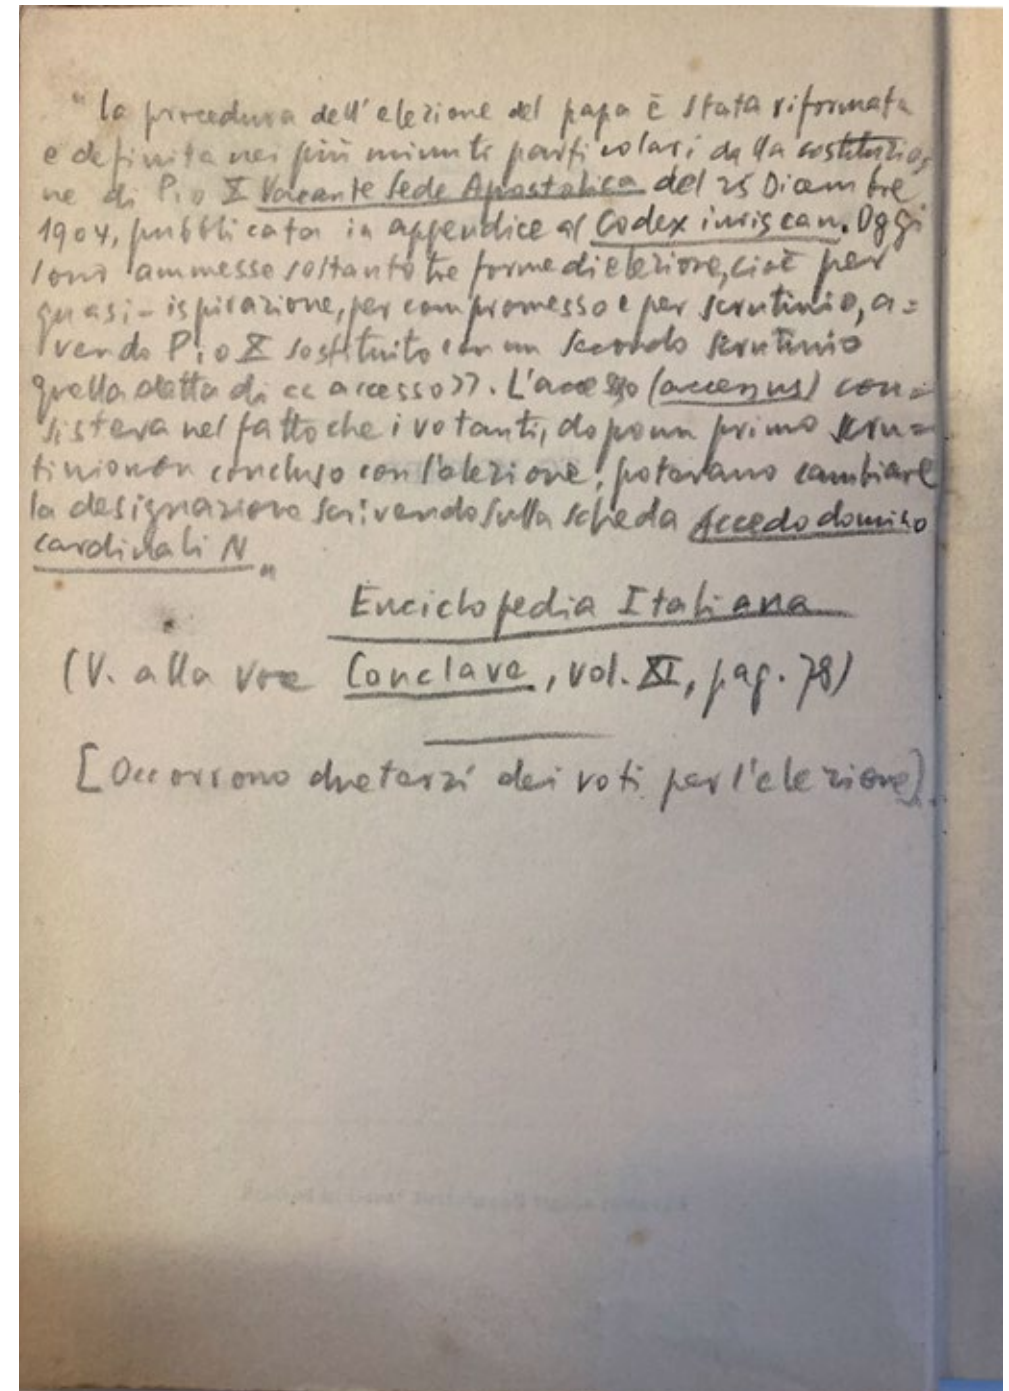 "La procedura dell'elezione del papa è stata riformata
e definita nei più minuti particolari dalla costituzio,
ne di Pio X Vacante Sede Apostolica del 25 Dicembre
1904, pubblicata in appendice al Codex iuris can. Oggi
sono ammesse soltanto tre forme di elezione, cioè per
quasi-ispirazione, per compromesso e per scrutinio, a=
vendo Pio X sostituito con un secondo scrutinio
quella detta di «accesso». L'accesso (accessus) con=
sisteva nel fatto che i votanti, dopo un primo scru=
tinio non concluso con l'elezione, potevano cambiare
la designazione scrivendo sulla scheda Accedo domino
cardinali N"
Enciclopedia Italiana
(V. alla voce Conclave, vol. XI, pag. 78)
[Occorrono due terzi dei voti per l'elezione].